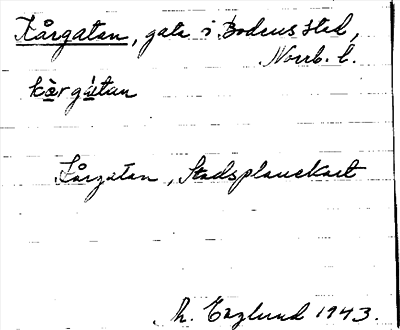 Kårgatan, gata i Bodens stad,
Norrb. l.
kårgatan
Kårgatan, Stadsplanekart
h. Englund 1943.